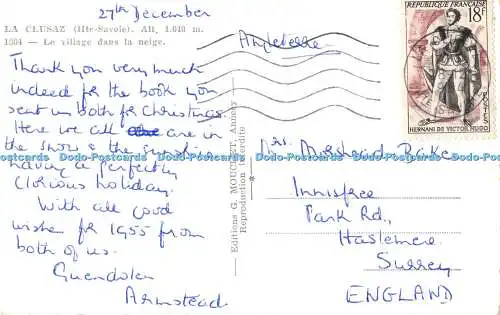 27th December
LA CLUSAZ (Hte-Savoie). Alt. 1.040 m.
1304 — Le village dans la neige.
Thank you very much
indeed for the book you
sent us both for Christmas.
Here we all are in
the snow & the sunshine
having a perfectly
glorious holiday.
With all good
wishes for 1955 from
both of us.
Guendolen
Armstead
Editions G. MOUCHET, Annecy
Reproduction interdite
Angleterre
RÉPUBLIQUE FRANÇAISE
18F
POSTES
HERNANI DE VICTOR HUGO
Mrs. Morshead Baker
Innisfree
Park Rd.,
Haslemere
Surrey
ENGLAND
Dodo-Postcards Dodo-Postcards Dodo-Postcards Dodo-Postcards Dodo-Postcards Dodo-Postcards